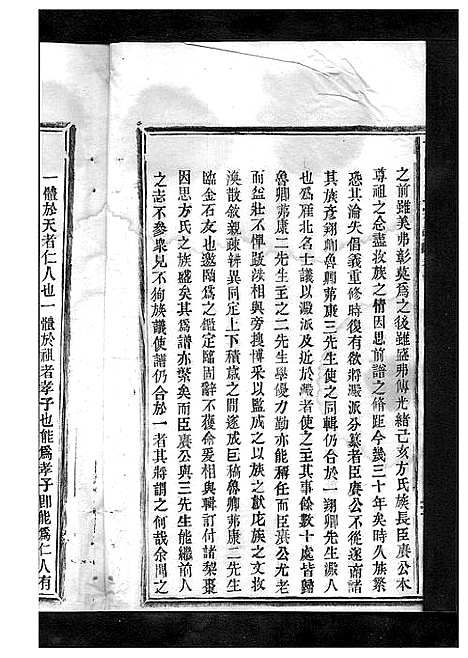 之前雖美弗彰莫爲之後雖盛弗傳光緒己亥方氏族長臣賡公本
尊祖之念盡收族之情因思前譜之修距今幾三十年矣時久族繁
恐其淪失倡義重修時復有欲將澱派分纂者臣賡公不從遂商諸
其族彥翔卿魯卿弗康三先生使之同輯仍合於一翔卿先生澱人
也爲雁北名士議以澱派及近於澱者使之主其事餘數十處皆歸
魯卿弗康二先生主之二先生學優力勤亦能稱任而臣賡公尤老
而益壯不憚跋涉相與旁搜博采以監成之以族之獻庀族之文收
渙散敘親疎辨異同上下積歲之間遂成巨稿魯卿弗康二先生
臨金石友也邀臨爲之鑑定臨固辭不獲命爰相與輯訂付諸梨棗
因思方氏之族盛矣其爲譜亦繁矣而臣賡公與三先生能繼前人
之志不參衆見不狥族議使譜仍合於一者其將謂之何哉余聞之
一體於天者仁人也一體於祖者孝子也能爲孝子則能爲仁人有